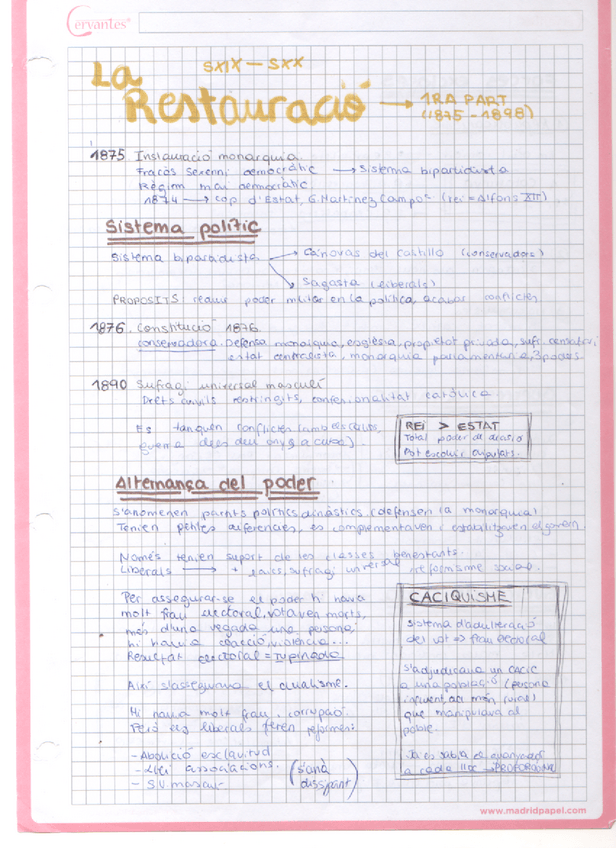 Cervantes®
SXIX - SXX
La
Restauració → 1RA PART
(1875 - 1898)
1875 Instauració monarquia.
Fracàs Sexenni democràtic → Sistema bipartidista
Règim mai democràtic.
1874 → cop d'Estat, G. Martínez Campos (rei = Alfons XII).
Sistema polític
Sistema bipartidista → Cánovas del Castillo (conservadors)
Sagasta (liberals)
PROPOSITS: reduir poder militar en la política, acabar conflictes
1876. Constitució 1876.
conservadora. Defensa monarquia, església, propietat privada, sufr. censatari,
estat centralista, monarquia parlamentaria, 3 poders.
1890 Sufragi universal masculí
Drets civils restringits, confesionalitat catòlica.
Es tanquen conflictes
guerra dels deu anys a Cuba).
REI > ESTAT
Total poder de decisió
Pot escollir diputats.
Alternança del poder
s'anomenen partits polítics dinàstics (defensen la monarquia)
Tenien petites diferències, es complementaven i estabilitzaven el govern.
Només tenien suport de les classes benestants.
Liberals → + laics, sufragi universal reformisme social.
Per assegurar-se el poder hi havia
molt frau electoral, votaven morts,
més d'una vegada una persona,
hi havia coacció, violència...
Resultat electoral = tupinada
Així s'assegurava el dualisme.
Hi havia molt frau, corrupció.
Però els liberals feren reformes:
- Abolició esclavitud
- Llei associacions.
- S.U masculí
(s'anà dissipant)
CACIQUISME
Sistema d'adulteració
del vot => frau electoral
S'adjudicava un cacic
a una població (persona
influent, al món rural)
que manipulava al
poble.
Ja es sabia el guanyador
a cada lloc →
www.madridpapel.com